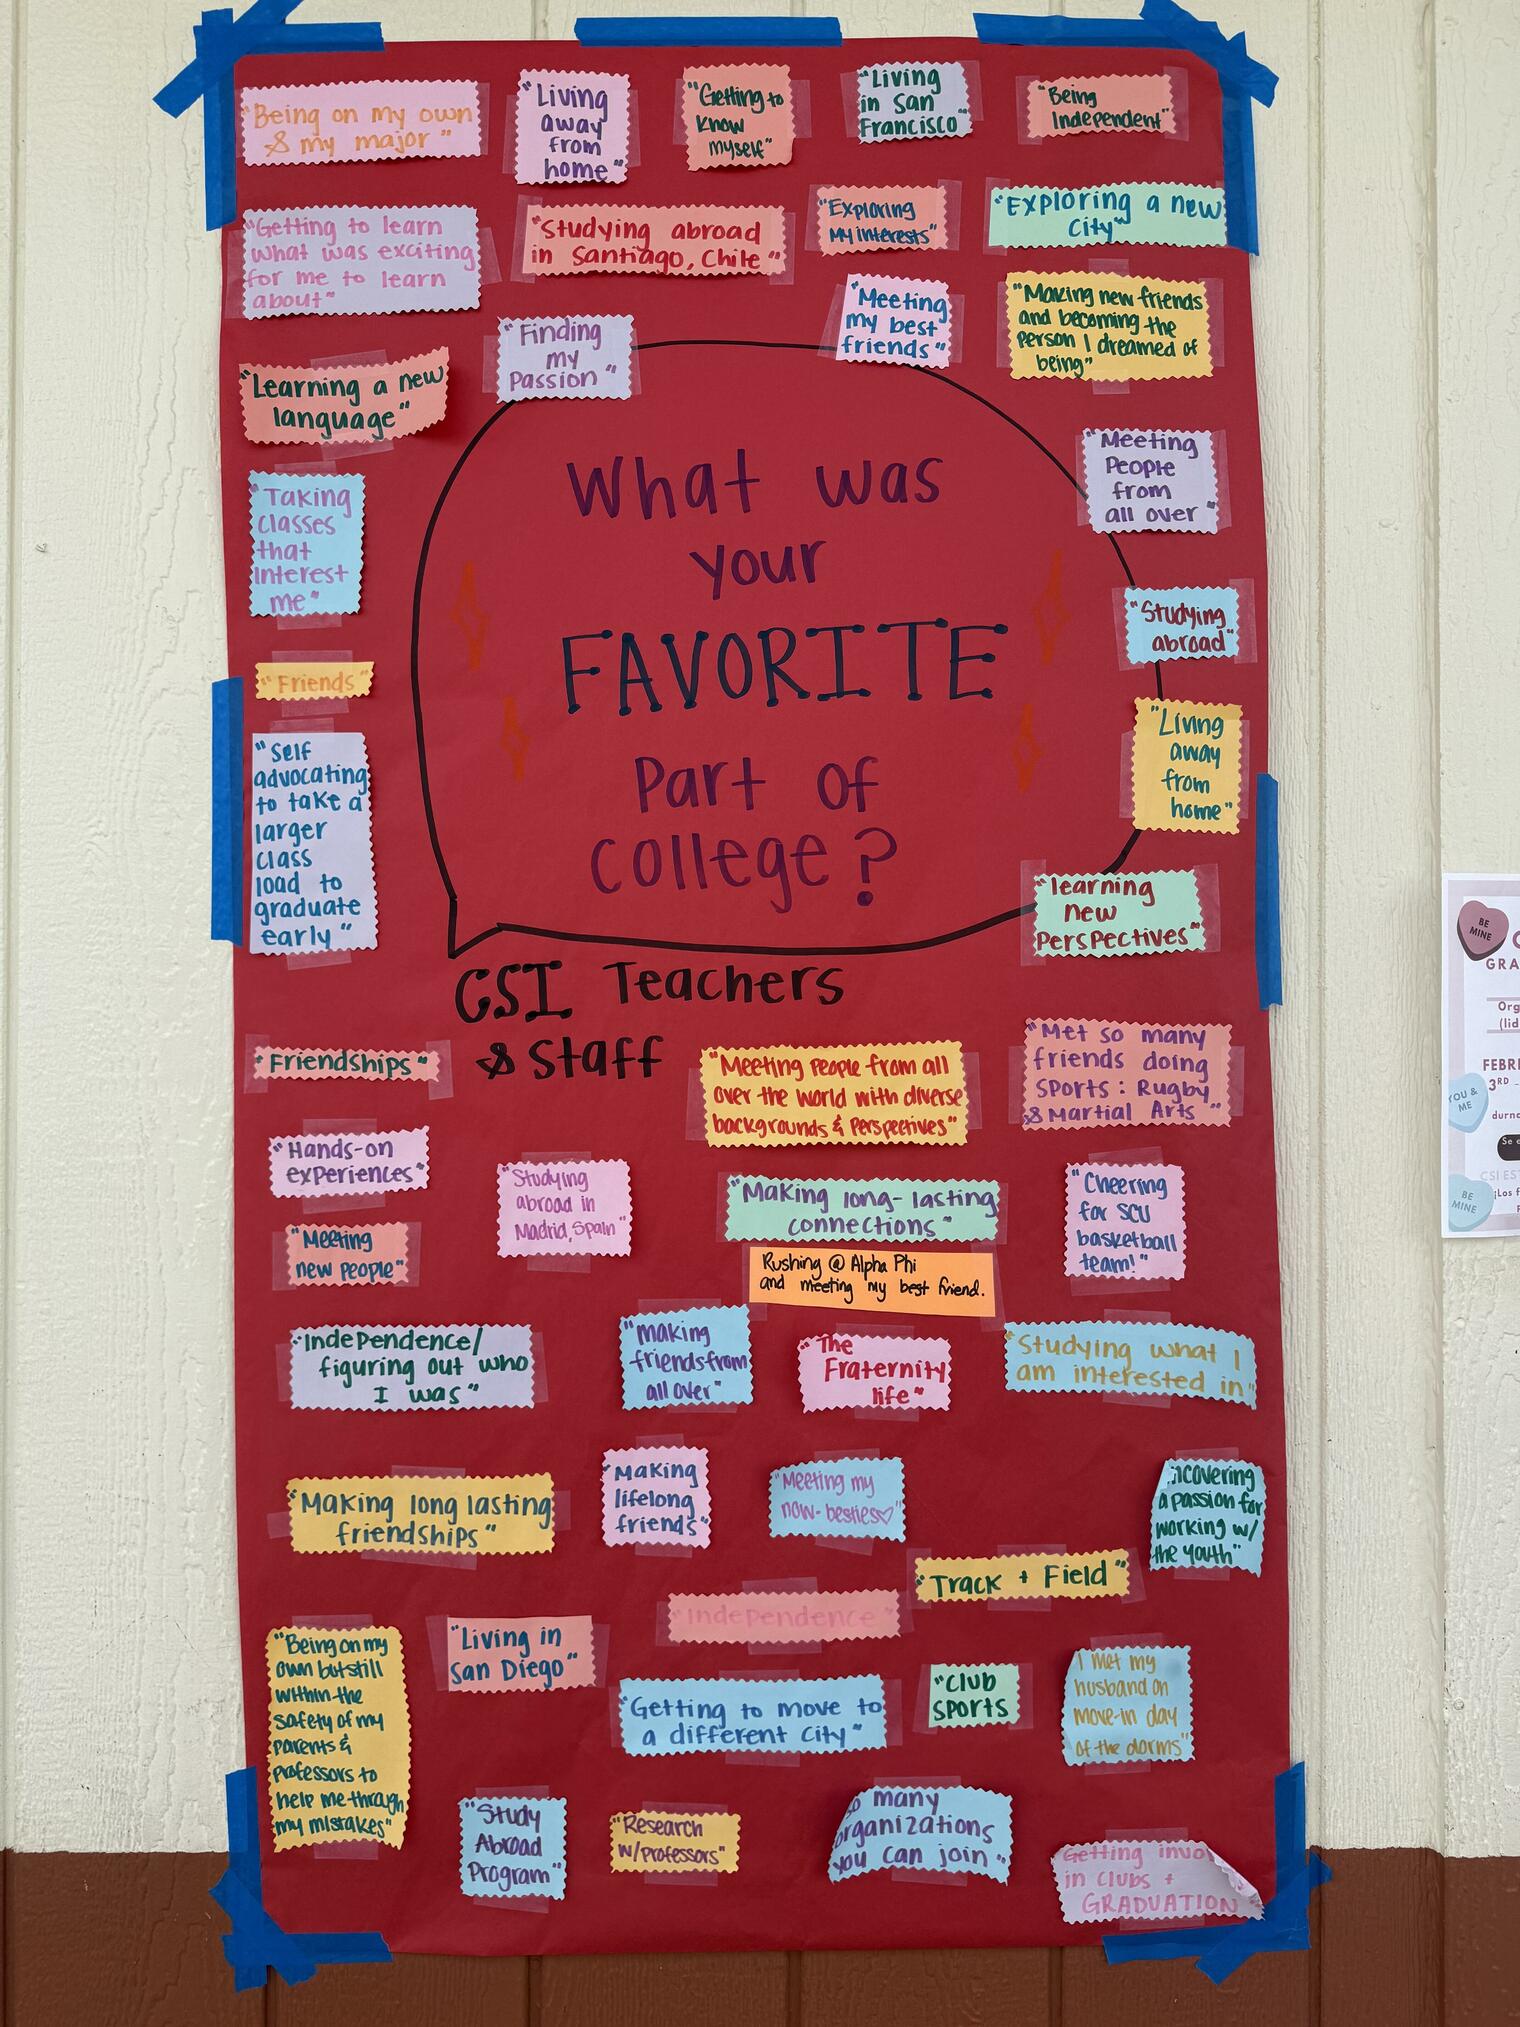 "Being on my own
& my major"
"Living
away
from
home"
"Getting to
know
myself"
"Living
in San
Francisco"
"Being
Independent"
"Getting to learn
what was exciting
for me to learn
about"
"Studying abroad
in Santiago, Chile"
"Exploring
My interests"
"Exploring a new
City"
"Finding
my
Passion"
"Meeting
my best
friends"
"Making new friends
and becoming the
person I dreamed of
being"
"Learning a new
language"
"Meeting
People
from
all over"
"Taking
classes
that
interest
me"
What was
your
FAVORITE
Part of
college?
"Studying
abroad"
"Friends"
"Living
away
from
home"
"Self
advocating
to take a
larger
class
load to
graduate
early"
"learning
new
Perspectives"
CSI Teachers
& Staff
"Friendships"
"Meeting People from all
over the world with diverse
backgrounds & Perspectives"
"Met so many
friends doing
sports: Rugby
& Martial Arts"
"Hands-on
experiences"
"Studying
abroad in
Madrid, Spain"
"Making long-lasting
connections"
"Cheering
for SCU
basketball
team!"
"Meeting
new people"
Rushing @ Alpha Phi
and meeting my best friend.
"Independence/
figuring out who
I was"
"Making
friends from
all over"
"The
Fraternity
life"
"Studying what I
am interested in"
"Making long lasting
friendships"
"Making
lifelong
friends"
"Meeting my
now-besties♡"
ncovering
a passion for
working w/
the youth"
"Track + Field"
"Independence"
"Being on my
own but still
within the
safety of my
parents &
professors to
help me through
my mistakes"
"Living in
San Diego"
"Getting to move to
a different City"
"Club
Sports
I met my
husband on
move-in day
of the dorms"
"Study
Abroad
Program"
"Research
w/professors"
so many
organizations
you can join"
Getting invo
in clubs +
GRADUATION
BE
MINE
GRA
Org
(lid
FEBR
3RD -
YOU &
ME
durn
Se
CSI EST
BE
MINE
¡Los f